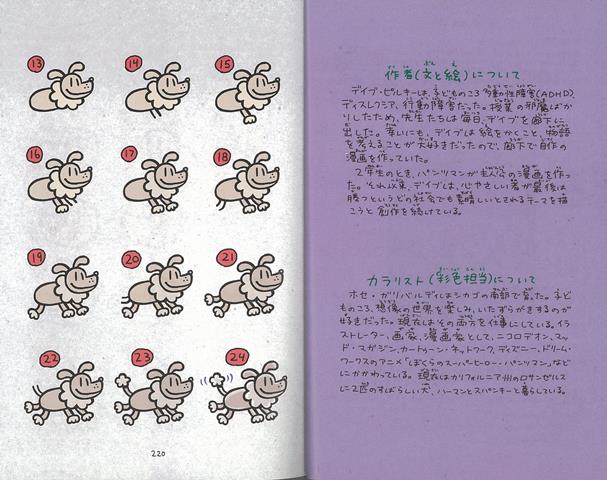 13
14
15
16
17
18
19
20
21
22
23
24
220
作者(文と絵)について
デイブ・ピルキーは、子どものころ多動性障害(ADHD)、
ディスレクシア、行動障害だった。授業の邪魔ばか
りしたため、先生たちは毎日、デイブを廊下に
出した。幸いにも、デイブは絵をかくこと、物語
を考えることが大好きだったので、廊下で自作の
漫画を作っていた。
2年生のとき、パンツマンが主人公の漫画を作っ
た。それ以来、デイブは、心やさしい者が最後は
勝つというどの社会でも素晴しいとされるテーマを描
こうと創作を続けている。
カラリスト(彩色担当)について
ホセ・ガリバルディはシカゴの南部で育った。子ど
ものころ、想像の世界を楽しみ、いたずらがきするのが
好きだった。現在はその両方を仕事にしている。イラ
ストレーター、画家、漫画家として、ニコロデオン、マッ
ド・マガジン、カートゥーン・ネットワーク、ディズニー、ドリーム・
ワークスのアニメ「ぼくらのスーパーヒーロー・パンツマン」などに
にかかわっている。現在はカリフォルニア州のロサンゼルス
に2匹のすばらしい犬、ハーマンとスパンキーと暮らしている。